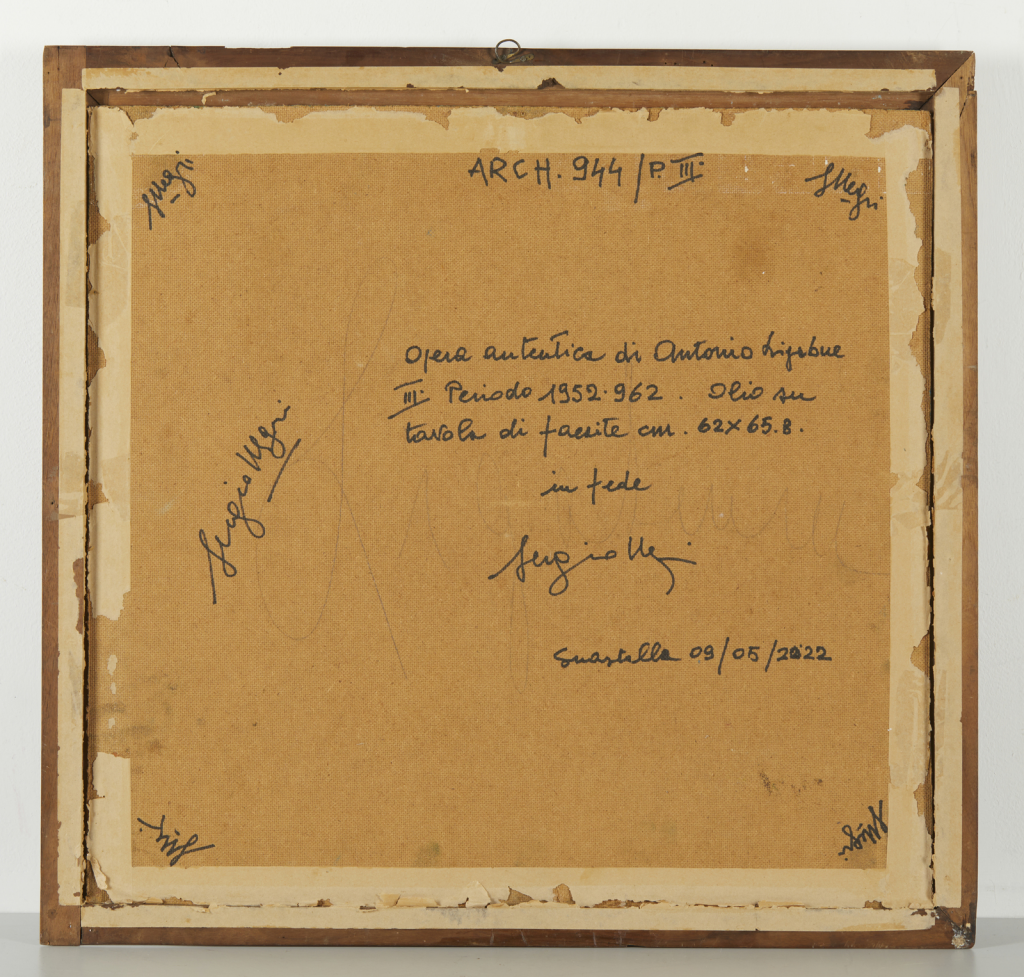 ARCH. 944/P. III.
SNegri
SNegri
Opera autentica di Antonio Ligabue
III. Periodo 1952-962. Olio su
tavola di faesite cm. 62x65.8.
in fede
Sergio Negri
Sergio Negri
Guastalla 09/05/2022
SNegri
SNegri